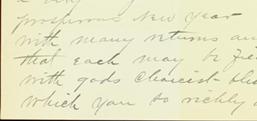 prosperous New Year
with many returns an
that each may be
with gods choicest
which you so richly